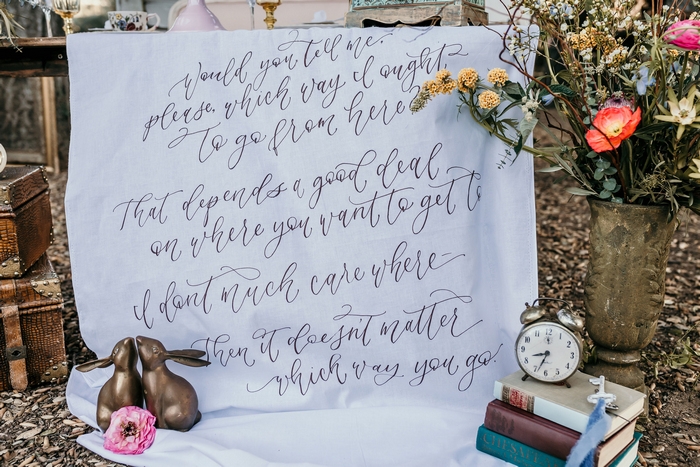 Would you tell me,
please, which way I ought
to go from here?
That depends a good deal
on where you want to get to
I don't much care where—
Then it doesn't matter
which way you go.